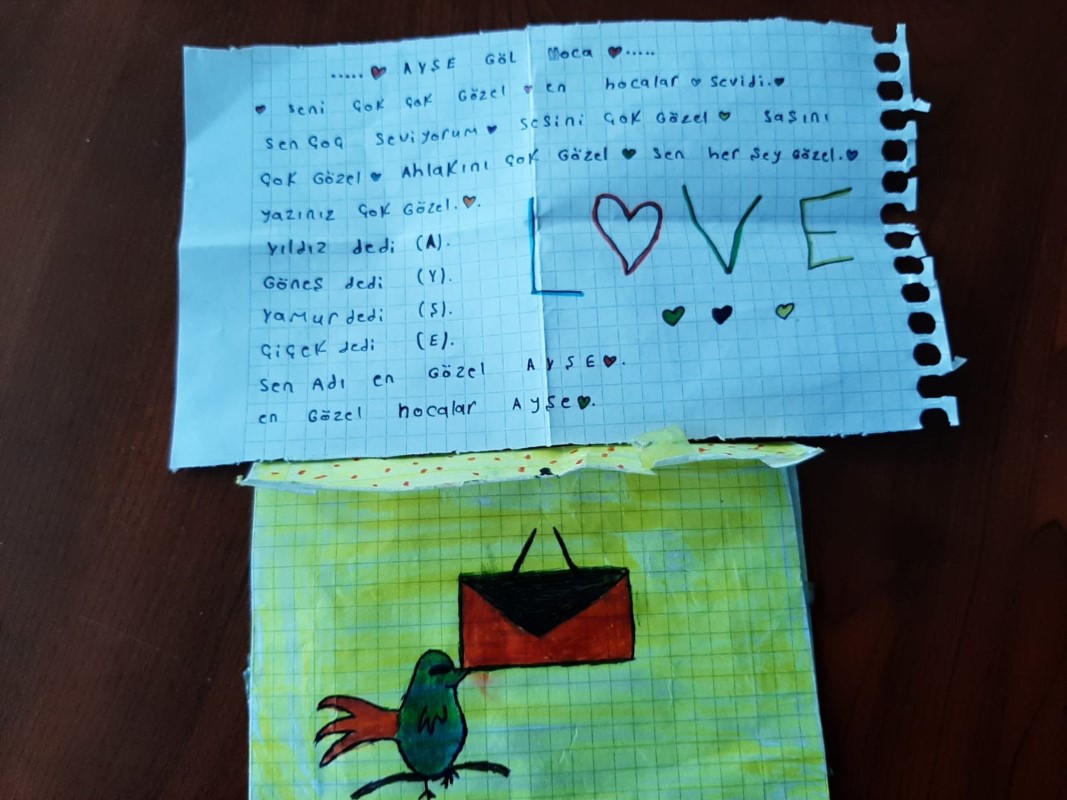 ..... ♥ AYŞE GÖL Hoca ♥.....
♥ seni çok çok Gözel ♥ en hocalar ♥ sevidi.♥
sen çoq seviyorum ♥ sesini çok Gözel ♥ saşını
çok Gözel ♥ Ahlakını çok Gözel ♥ sen her şey Gözel.♥
yazınız çok Gözel.♥.
yıldız dedi (A).
Göneş dedi (Y).
yamur dedi (Ş).
çiçek dedi (E).
sen Adı en Gözel AYŞE♥.
en Gözel hocalar Ayşe♥.
L♥VE